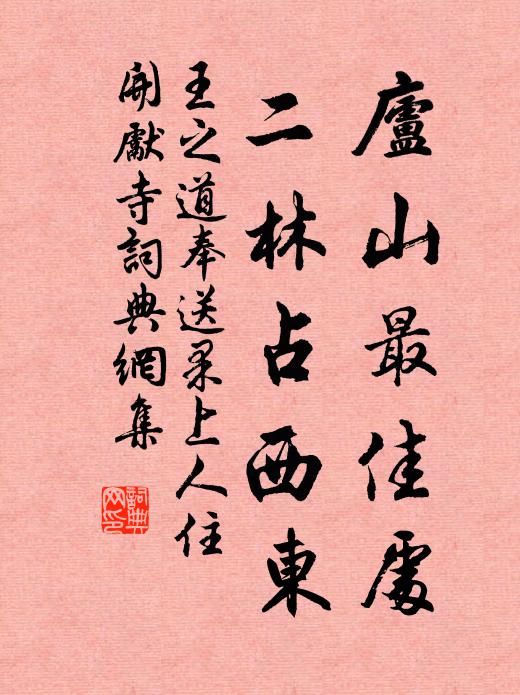 廬山最佳處
二林占西東
王之道奉送果上人住
開獻寺詞典網集
詞典
网印